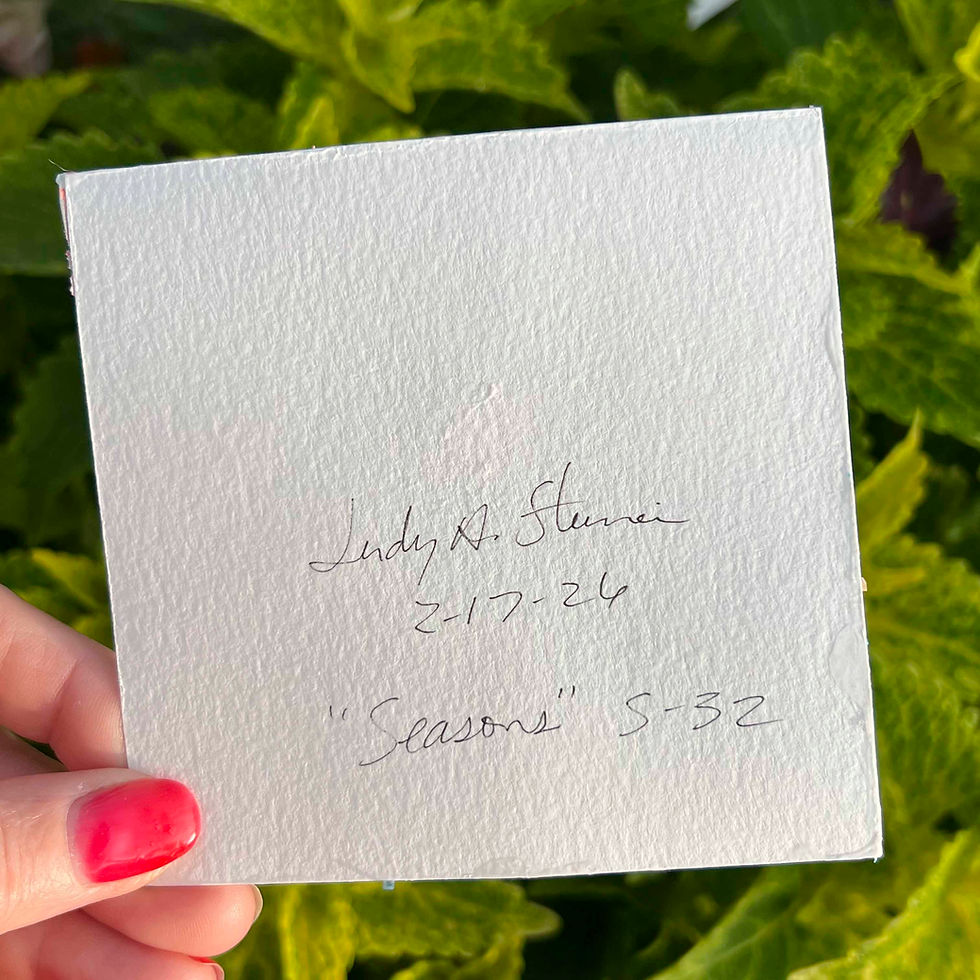 Judy A.
2-17-24
"Seasons" S-32